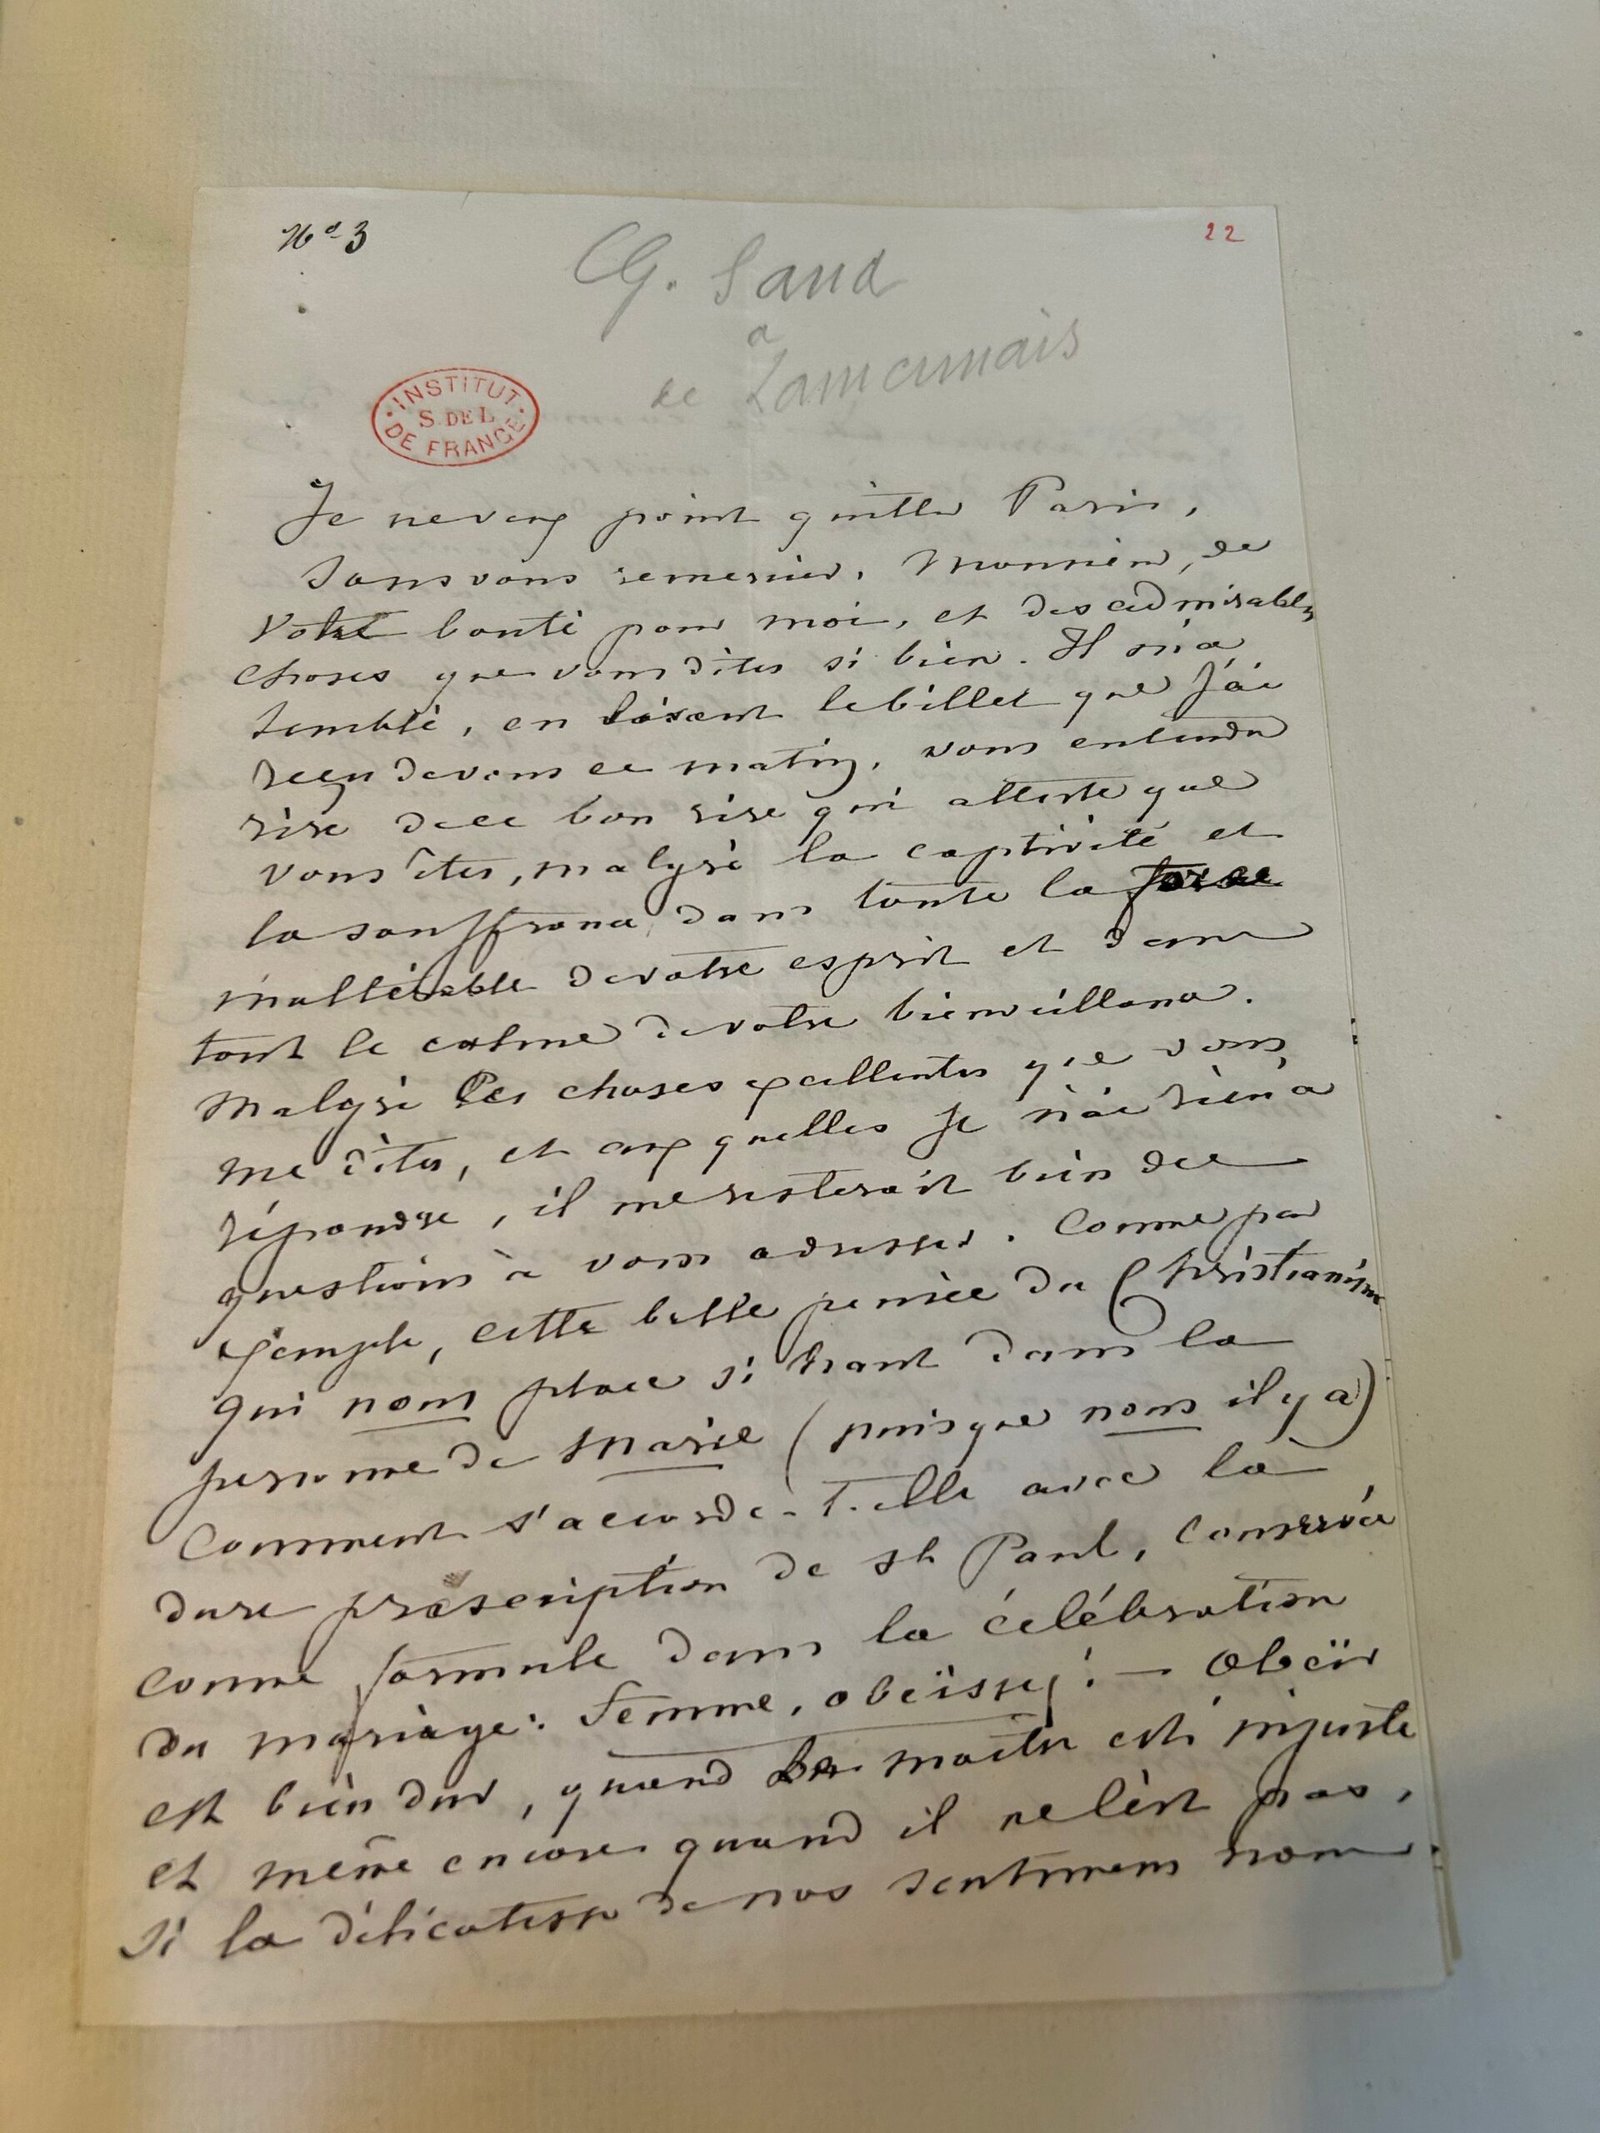 No 3
22
G. Sand
a
de Lamennais
INSTITUT
S. DE L
DE FRANCE
Je ne veux point quitter Paris,
sans vous remercier, Monsieur, de
votre bonté pour moi, et des admirables
choses que vous dites si bien. Il m'a
semblé, en lisant le billet que j'ai
reçu de vous ce matin, vous entendre
rire de ce bon rire qui atteste que
vous êtes, malgré la captivité et
la souffrance, dans toute la force
inaltérable de votre esprit et dans
tout le calme de votre bienveillance.
Malgré les choses excellentes que vous
me dites, et auxquelles je n'ai rien à
répondre, il me resterait bien des
questions à vous adresser. Comme par
exemple, cette belle pensée du Christianisme
qui nous place si haut dans la
personne de Marie (puisque nous il y a)
Comment s'accorde-t-elle avec la
dure prescription de St Paul, conservée
comme formule dans la célébration
du mariage: Femme, obéissez! — Obéir
est bien dur, quand le maître est injuste
et même encore quand il ne l'est pas,
si la délicatesse de nos sentimens nous